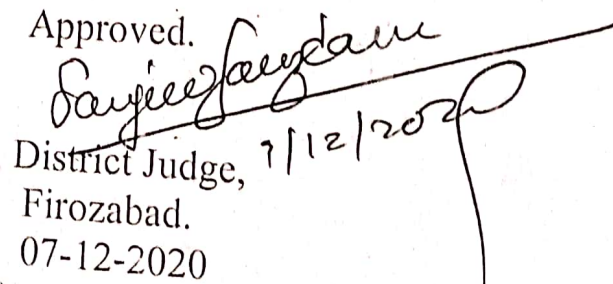 Approved.
District Judge, 7/12/2020
Firozabad.
07-12-2020